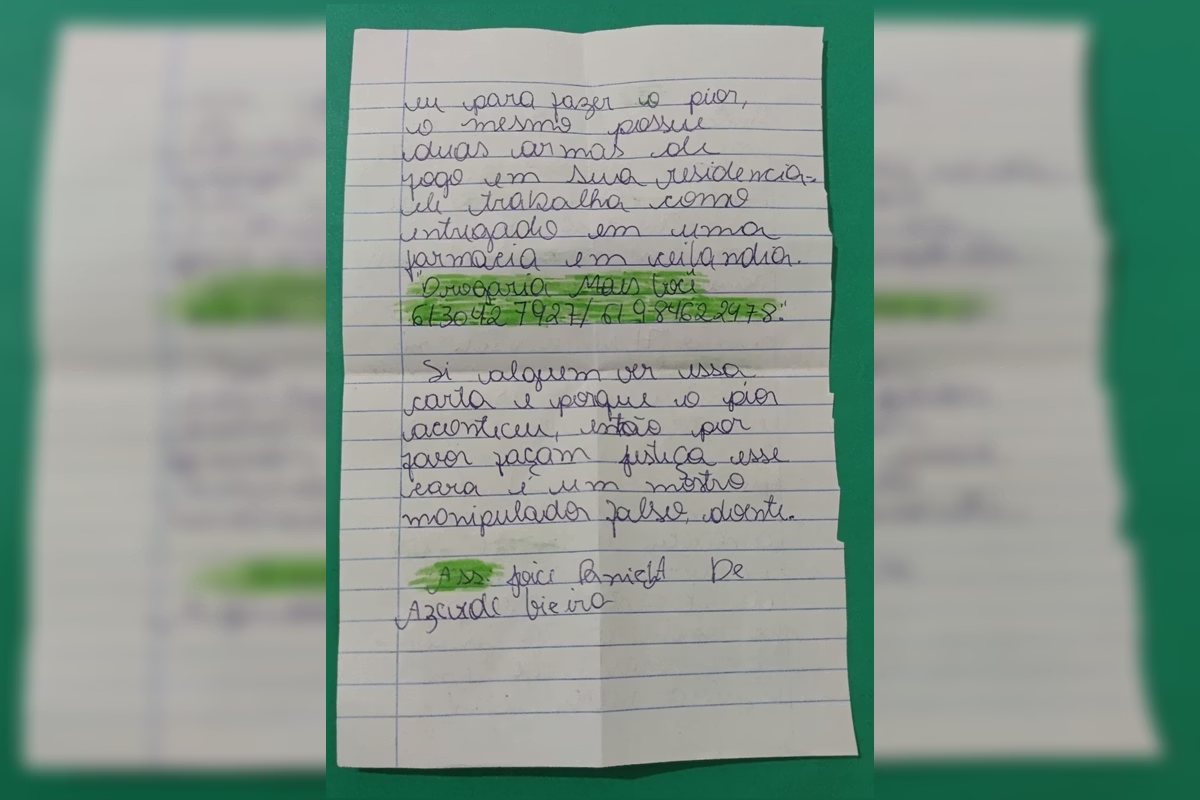 eu para fazer o pior,
o mesmo possue
duas armas de
fogo em sua residencia-
ele trabalha como
entregado em uma
farmacia em ceilandia.
"Drogaria Mais Você
613042 7927/ 61 984622478."
Si alguem ver essa
carta e porque o pior
aconteceu, então por
favor façam justiça esse
cara é um mostro
manipulador falso, doente.
Ass: Joice De
Azevedo Vieira